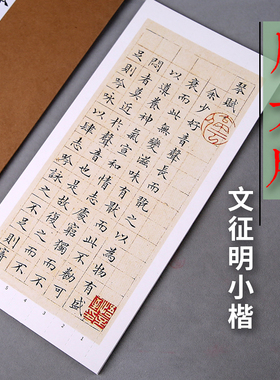 琴賦
余少好音聲長而翫之以為物有盛
衰而此無變滋味有猒而此不勌可
以導養神氣宣和情志處窮獨而不
悶者莫近於音聲也是故復之而不
足則吟詠以肆志吟詠之不足則寄
5 4 3 2 1
文征明小楷